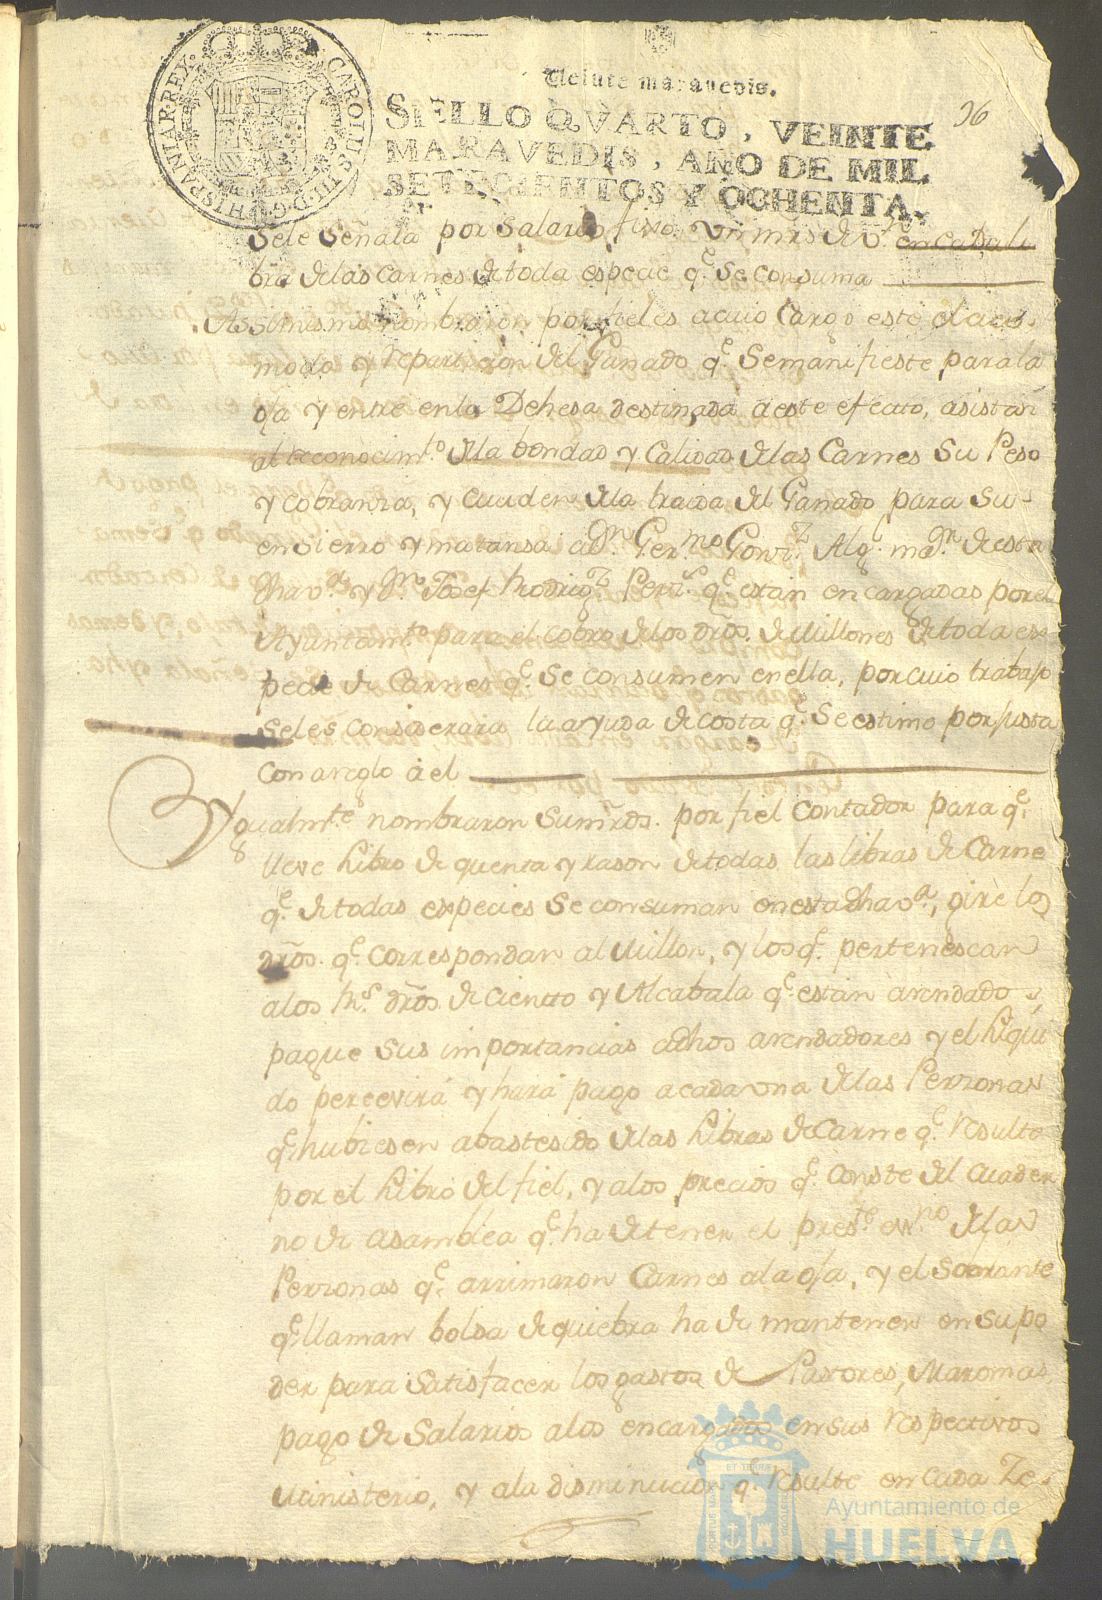 CAROLUS III. D. G. HISPANIAR. REX.
Veinte maravedis.
SELLO QVARTO, VEINTE
MARAVEDIS, AÑO DE MIL
SETECIENTOS Y OCHENTA.
96
Sele señala por salario fixo, un mrs de v.n en cada li
bra delas carnes de toda especie q.e se consuma
Assimismo nombraron por fieles a cuio cargo este el aco
modo y repartizion del Ganado q.e se manifieste para la
oja y entre enla Dehesa destinada a este efecto, asistan
al reconocim.to dela bondad y calidad delas Carnes su Peso
y cobranza, y cuiden dela traida del Ganado para su
ensierro y matansa a D.n Ger.mo Gonz.z Alg.l m.or de esta
dha v.a y D.n Josef Rodrig.z q.e estan encargadas por el
Ayuntam.to para el cobro delos dros. de Millones de toda es
pecie de Carnes q.e se consumen en ella, por cuio trabajo
seles considerara la ayuda de costa q.e se estimo por justa
con areglo a el
Ygualm.te nombraron sus mrds. por fiel Contador para q.e
lleve Libro de quenta y rason de todas las libras de Carne
q.e de todas especies se consuman en esta dha v.a, gire los
dros. q.e correspondan al Millon, y los q.e pertenescan
alos R.s dros de ciento y Alcabala q.e estan arendados,
pague sus importancias a dhos arendadores y el liqui
do percevirá y hará pago a cada una delas Perzonas
q.e hubiesen abastesido delas Libras de Carne q.e resulte
por el Libro del fiel, y alos precios q.e conste del cuader
no de asamblea q.e ha de tener el pres.te es.no delas
Perzonas q.e arrimaron Carnes ala oja, y el sobrante
q.e llaman bolsa de quiebra ha de mantener en su po
der para satisfacer los gastos de Pastores, Maromas,
pago de Salarios alos encargados en sus respectivos
Ministerio, y ala disminucion q.e resulte en cada Re
Ayuntamiento de
HUELVA